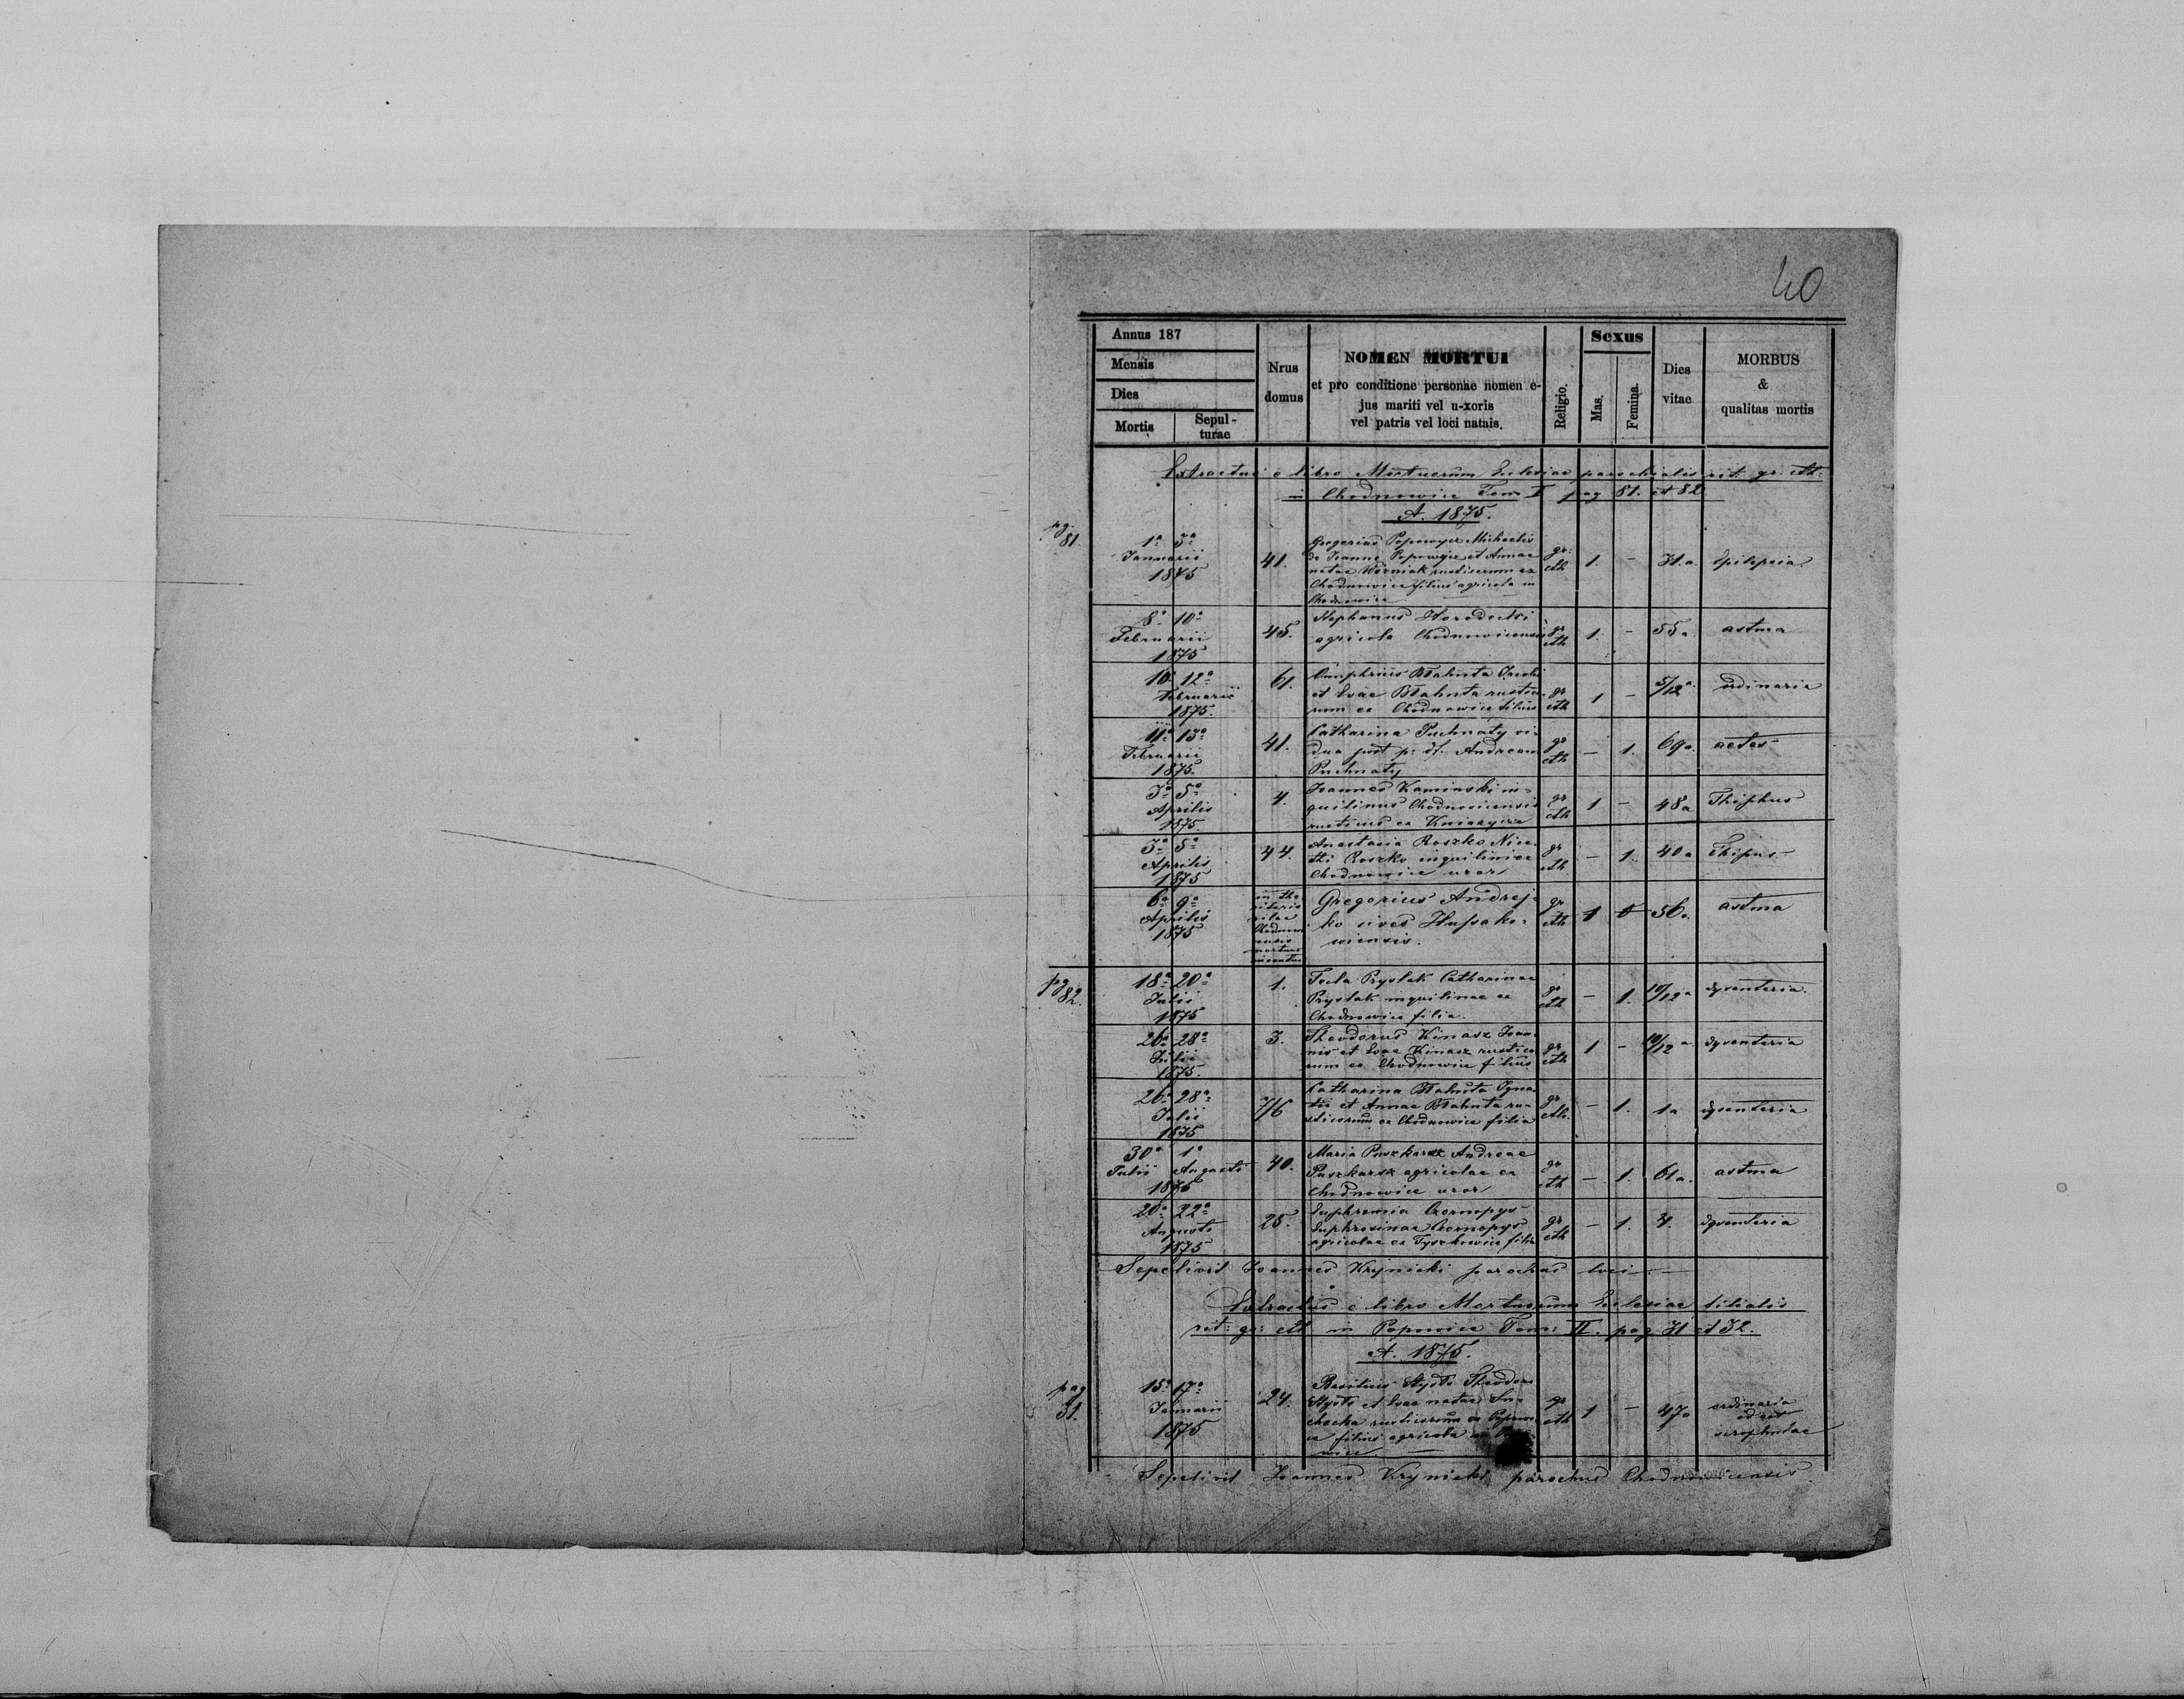 40
Annus 187
Mensis
Dies
Mortis
Sepul-
turae
Nrus
domus
NOMEN MORTUI
et pro conditione personae nomen e-
jus mariti vel u-xoris
vel patris vel loci natais.
Religio.
Sexus
Mas.
Femina.
Dies
vitae
MORBUS
&
qualitas mortis
Extractus e libro Mortuorum Eclesiae parochialis rit. gr. cth.
in Chodnowice Tom. I pag 81. et 82
A. 1875.
pg. 81.
1a 3a
Januarii
1875
41.
Gregorius Popowycz Michaelis
de Joanne Popowycz et Annae
natae Woźniak rusticorum ex
Chodnowice filius agricola in
Chodnowice
gr: cth
1. -
31.a
Epilepsia
8a 10a
Februarii
1875
45.
Stephanus Horodecki
agricola Chodnowicensis
gr cth
1. -
55a.
astma
10a 12a
Februarii
1875.
61.
Onuphrius Błahuta Jacobi
et Evae Błahuta rustico-
rum ex Chodnowice filius
gr cth
1 -
5/12a.
ordinaria
11a 13a
Februarii
1875.
41.
Catharina Puchnaty vi-
dua post p. df. Andream
Puchnaty
gr cth
- 1.
69a.
aetas
3a 5a
Aprilis
1875.
4.
Joannes Kaminski in-
quilinus Chodnovicensis
rusticus ex Kniazyce
gr cth
1 -
48a
Thiphus
3a 5a
Aprilis
1875
44.
Anastasia Roszko Nice-
tki Roszko inquilini ex
Chodnowice uxor
gr cth
- 1.
40a
Thipus
6a 9a
Aprilis
1875
Gregorius Andrej-
ko cives Hussako-
wiensis.
gr cth
1
56a.
astma
pg 82.
18a 20a
Julii
1875
1.
Tecla Prystak Catharinae
Prystak inquilinae ex
Chodnowice filia.
gr cth
- 1.
10/12a
dysenteria.
26a 28a
Julii
1875.
3.
Theodorus Kinasz Joan-
nis et Evae Kinasz rustico-
rum ex Chodnowice filius
gr cth
1 -
10/12 a.
dysenteria
26a 28a
Julii
1875
7/6
Catharina Błahuta Igna-
tii et Annae Błahuta ru-
sticorum ex Chodnowice filia
gr cth.
- 1.
1a
dysenteria
30a 1a
Julii Augusti
1875
40.
Maria Puszkarz Andreae
Puszkarz agricolae ex
Chodnowice uxor
gr cth
- 1.
61a.
astma
20a 22a
Augusti
1875
25.
Euphremia Czornopys
Euphrosinae Czornopys
agricolae ex Tyszkowice filia
gr cth
- 1.
dysenteria
Sepelivit Joannes Krynicki parochus loci
Extractus e libro Mortuorum Eclesiae filialis
rit: gr: cth in Popowice Tom: II. pag 31 et 32.
A. 1875.
pag 31.
15a 17a
Januarii
1875
24.
Basilius Theodori
et Evae natae
rusticorum ex
filius agricola
gr cth
1 -
47a
ordinaria
scrophulae
Sepelivit Joannes Krynicki parochus Chodnowicensis.